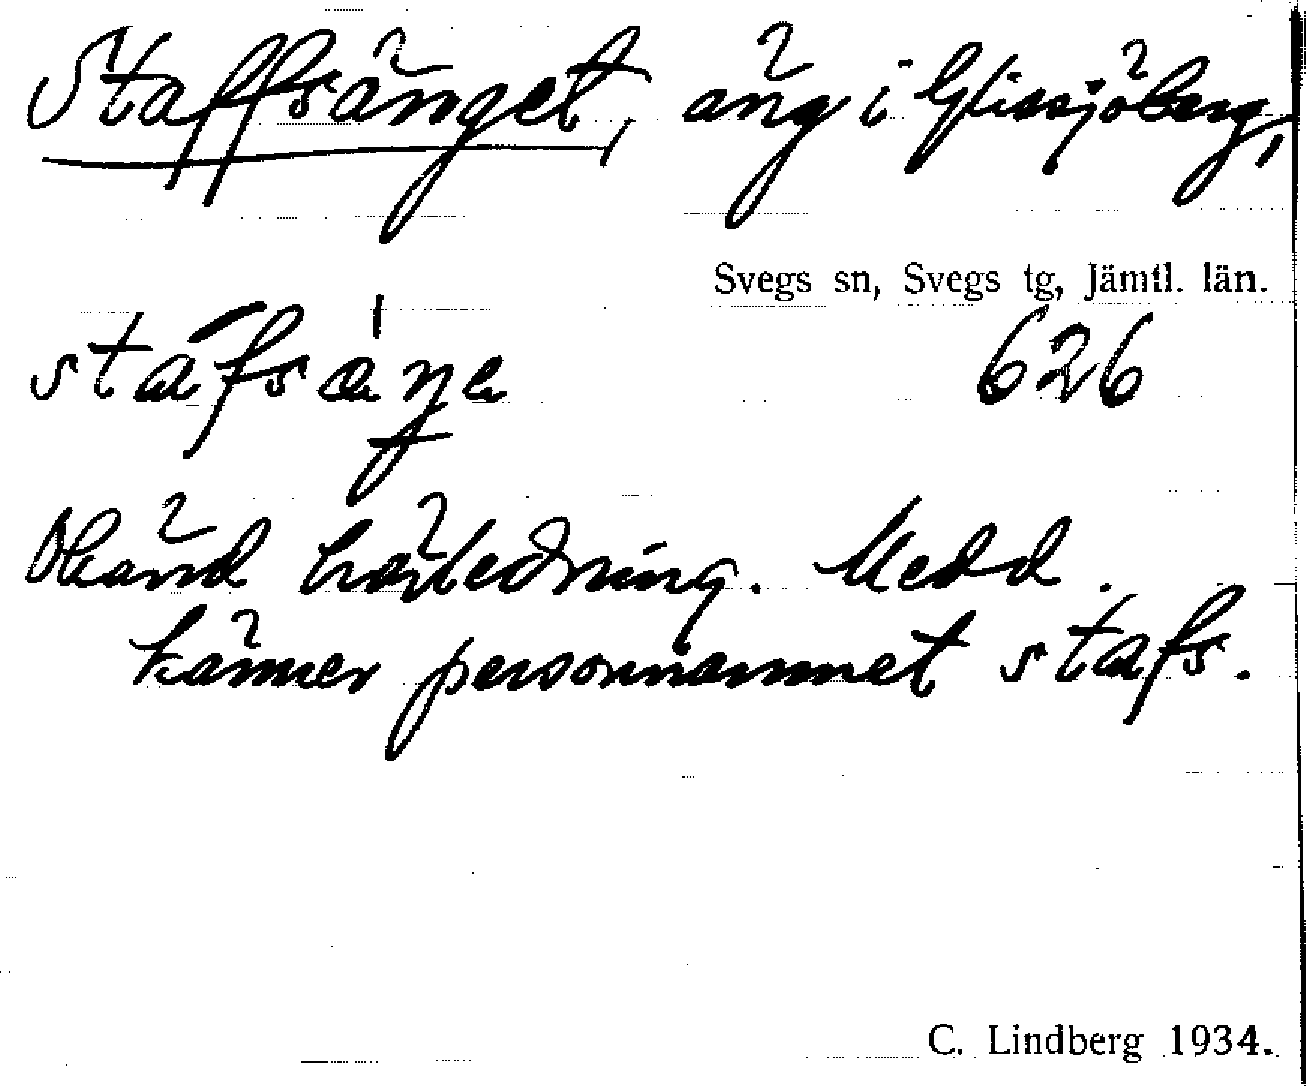 Staffsänget, äng i Glissjöberg,
Svegs sn, Svegs tg, Jämtl. län.
626
Okänd härledning. Medd.
känner personnamnet stafs.
C. Lindberg 1934.